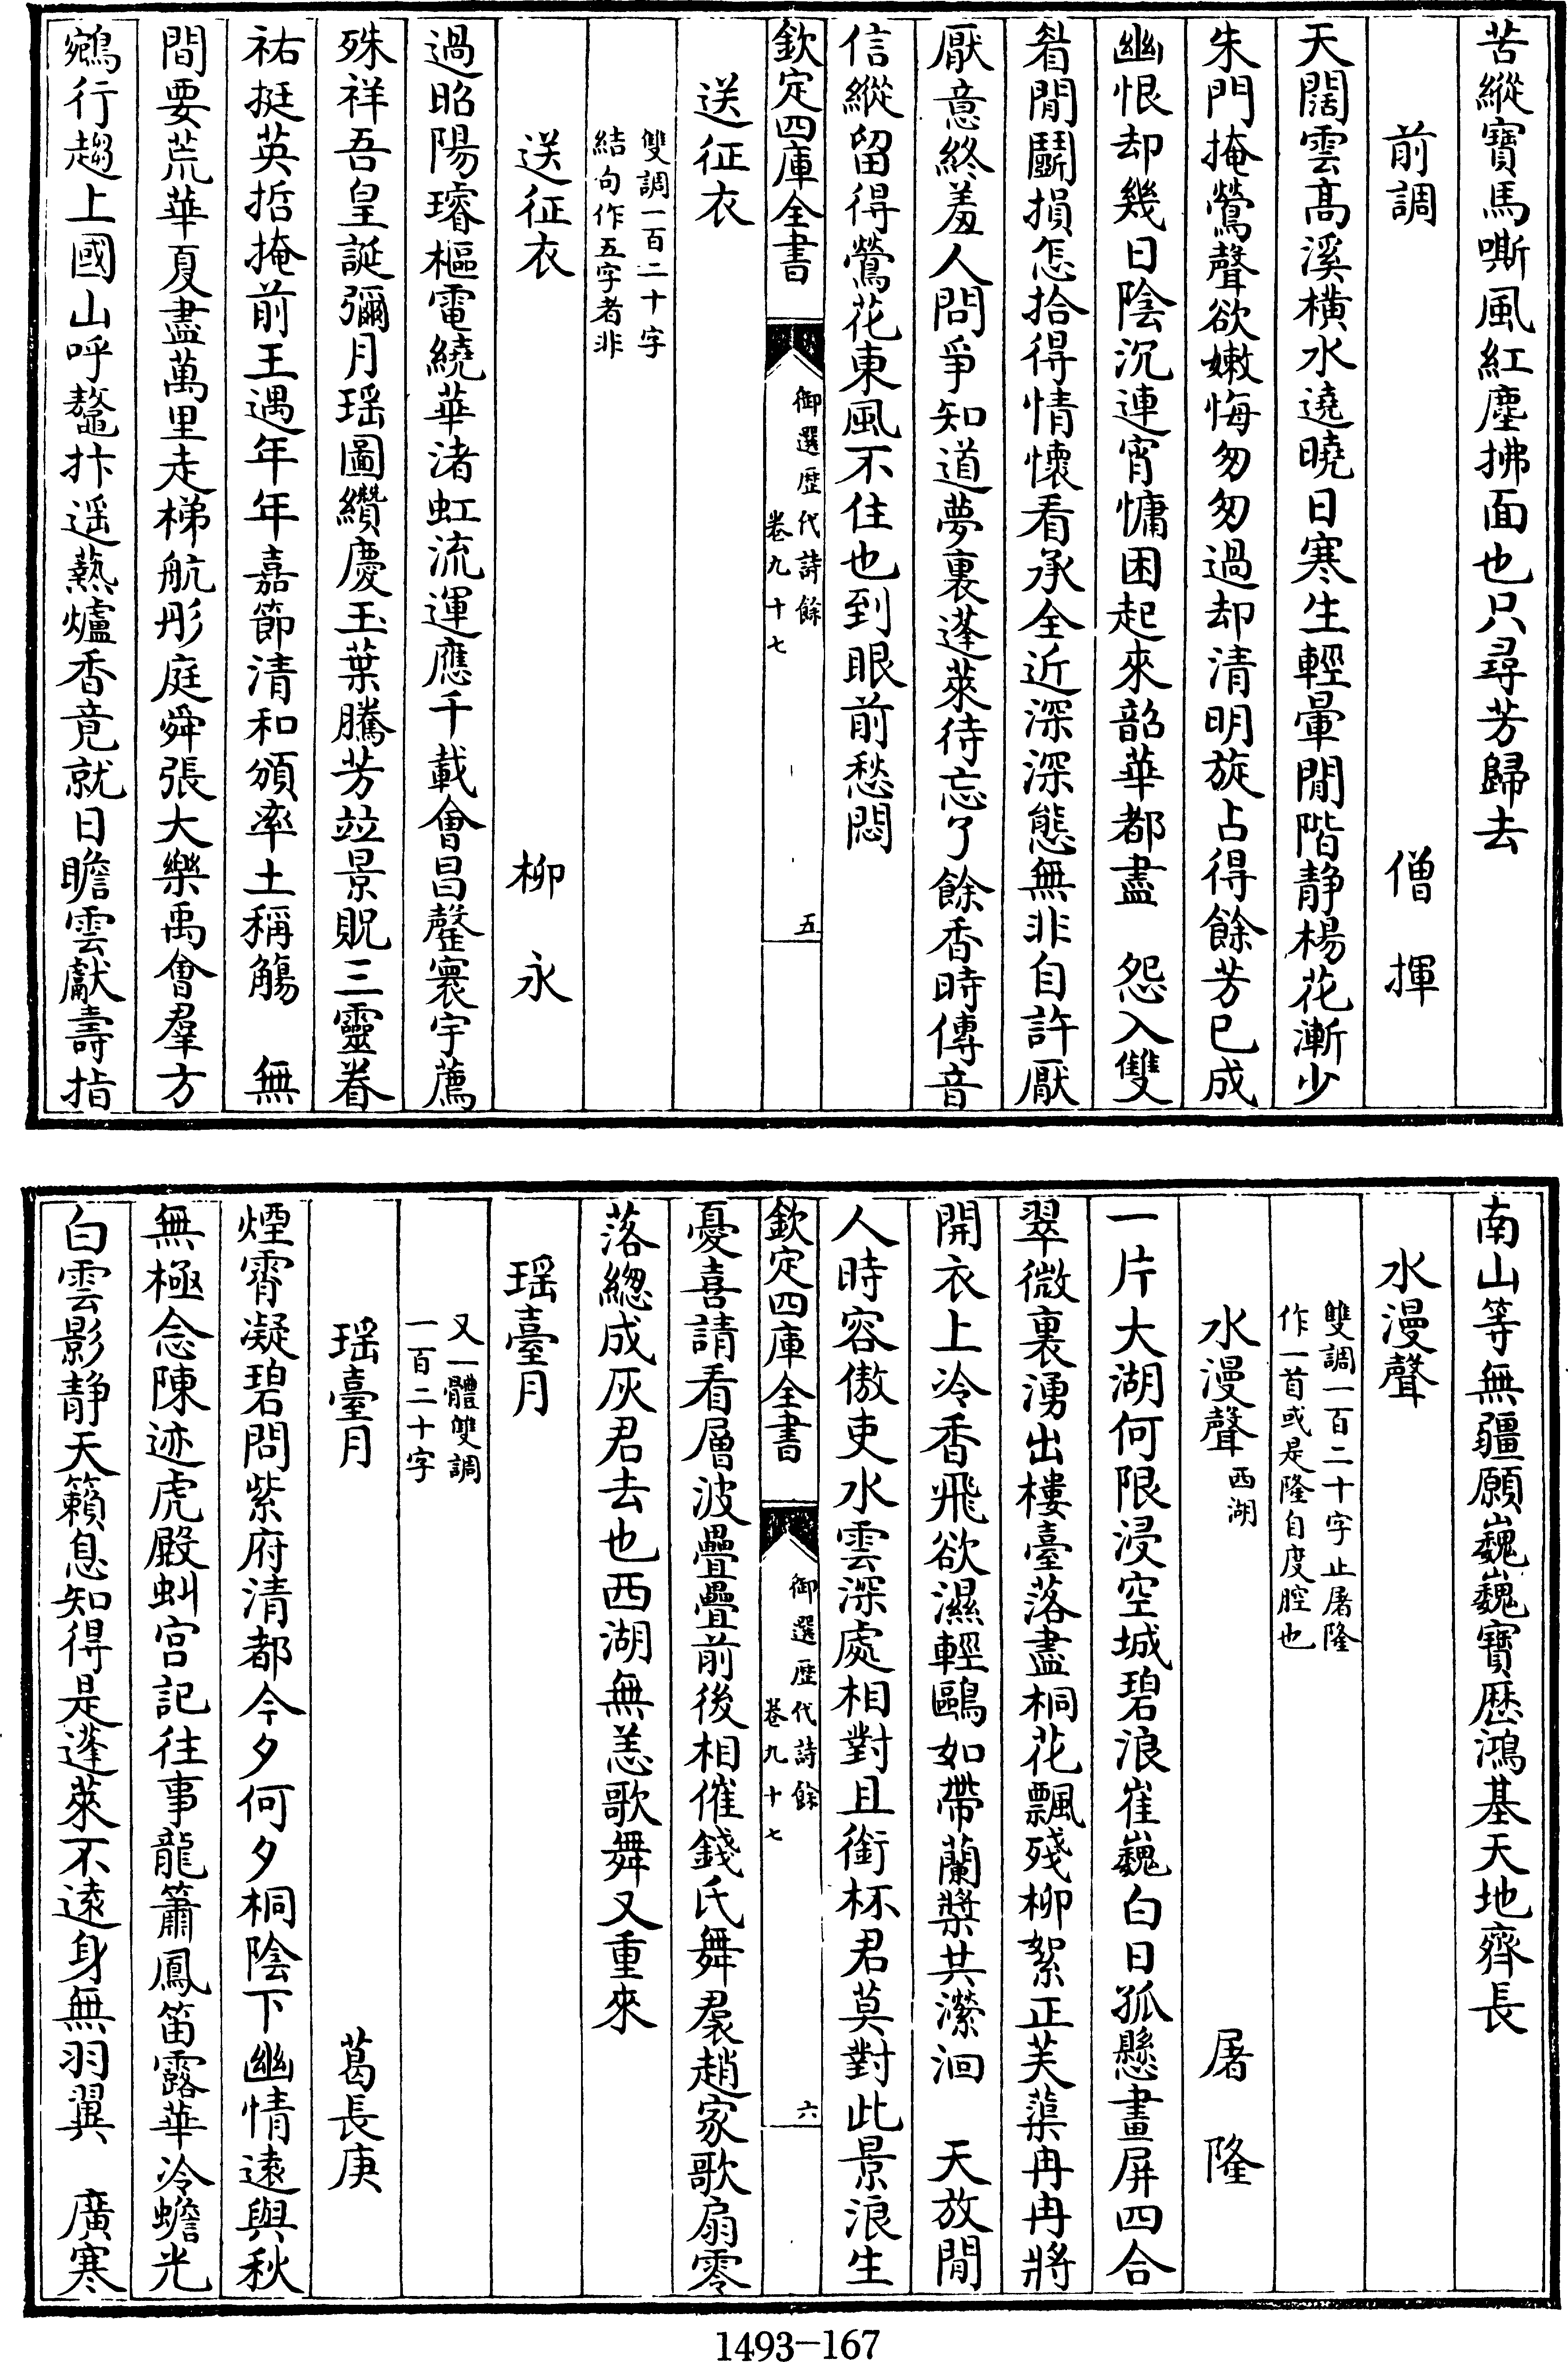 苦縱寶馬嘶風紅塵拂面也只尋芳歸去
前調　僧揮
天闊雲高溪橫水遶曉日寒生輕暈閒階静楊花漸少
朱門掩鶯聲欲嫩悔匆匆過却清明旋占得餘芳已成
幽恨却幾日陰沉連宵慵困起來韶華都盡　怨入雙
眉閒鬬損怎拾得情懷看承全近深深態無非自許厭
厭意終羞人問爭知道夢裏蓬萊待忘了餘香時傳音
信縱留得鶯花東風不住也到眼前愁悶
欽定四庫全書　御選歷代詩餘　卷九十七　五
送征衣
雙調一百二十字
結句作五字者非
送征衣　柳永
過昭陽璿樞電繞華渚虹流運應千載會昌罄寰宇薦
殊祥吾皇誕彌月瑶圖纘慶玉葉騰芳竝景貺三靈眷
祐挺英哲掩前王遇年年嘉節清和頒率土稱觴　無
間要荒華夏盡萬里走梯航彤庭舜張大樂禹會羣方
鵷行趨上國山呼鼇抃遥爇爐香竟就日瞻雲獻壽指
南山等無疆願巍巍寶歷鴻基天地齊長
水漫聲
雙調一百二十字止屠隆
作一首或是隆自度腔也
水漫聲　西湖　屠隆
一片大湖何限浸空城碧浪崔巍白日孤懸畫屏四合
翠微裏湧出樓臺落盡桐花飄殘柳絮正芙蕖冉冉將
開衣上冷香飛欲濕輕鷗如帶蘭槳共瀠洄　天放閒
人時容傲吏水雲深處相對且銜杯君莫對此景浪生
欽定四庫全書　御選歷代詩餘　卷九十七　六
憂喜請看層波疊疊前後相催錢氏舞裠趙家歌扇零
落緫成灰君去也西湖無恙歌舞又重來
瑶臺月
又一體雙調
一百二十字
瑶臺月　葛長庚
煙霄凝碧問紫府清都今夕何夕桐陰下幽情遠與秋
無極念陳迹虎殿虯宫記往事龍簫鳳笛露華冷蟾光
白雲影静天籟息知得是蓬萊不遠身無羽翼　廣寒
1493-167